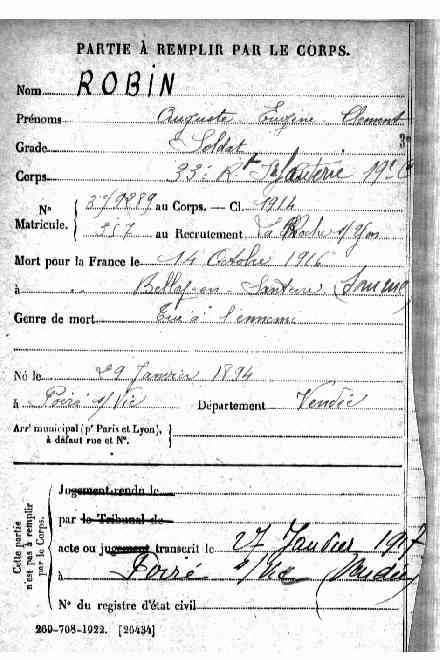 PARTIE À REMPLIR PAR LE CORPS.
Nom ROBIN
Prénoms Auguste Eugène Clément
Grade Soldat
Corps 33e Rt Infanterie 19e C
Nº Matricule. { 37/9289 au Corps. — Cl. 1914
517 au Recrutement La Roche s/Yon
Mort pour la France le 14 Octobre 1916
à Belloy-en-Santerre (Somme)
Genre de mort Tué à l'ennemi
Né le 29 Janvier 1894
à Poiré s/Vie Département Vendée
Arrt municipal (pr Paris et Lyon), à défaut rue et Nº. }
Cette partie n'est pas à remplir par le Corps.
Jugement rendu le
par le Tribunal de
acte ou jugement transcrit le 27 Janvier 1917
à Poiré s/Vie (Vendée)
Nº du registre d'état civil
269-708-1922. [26434]